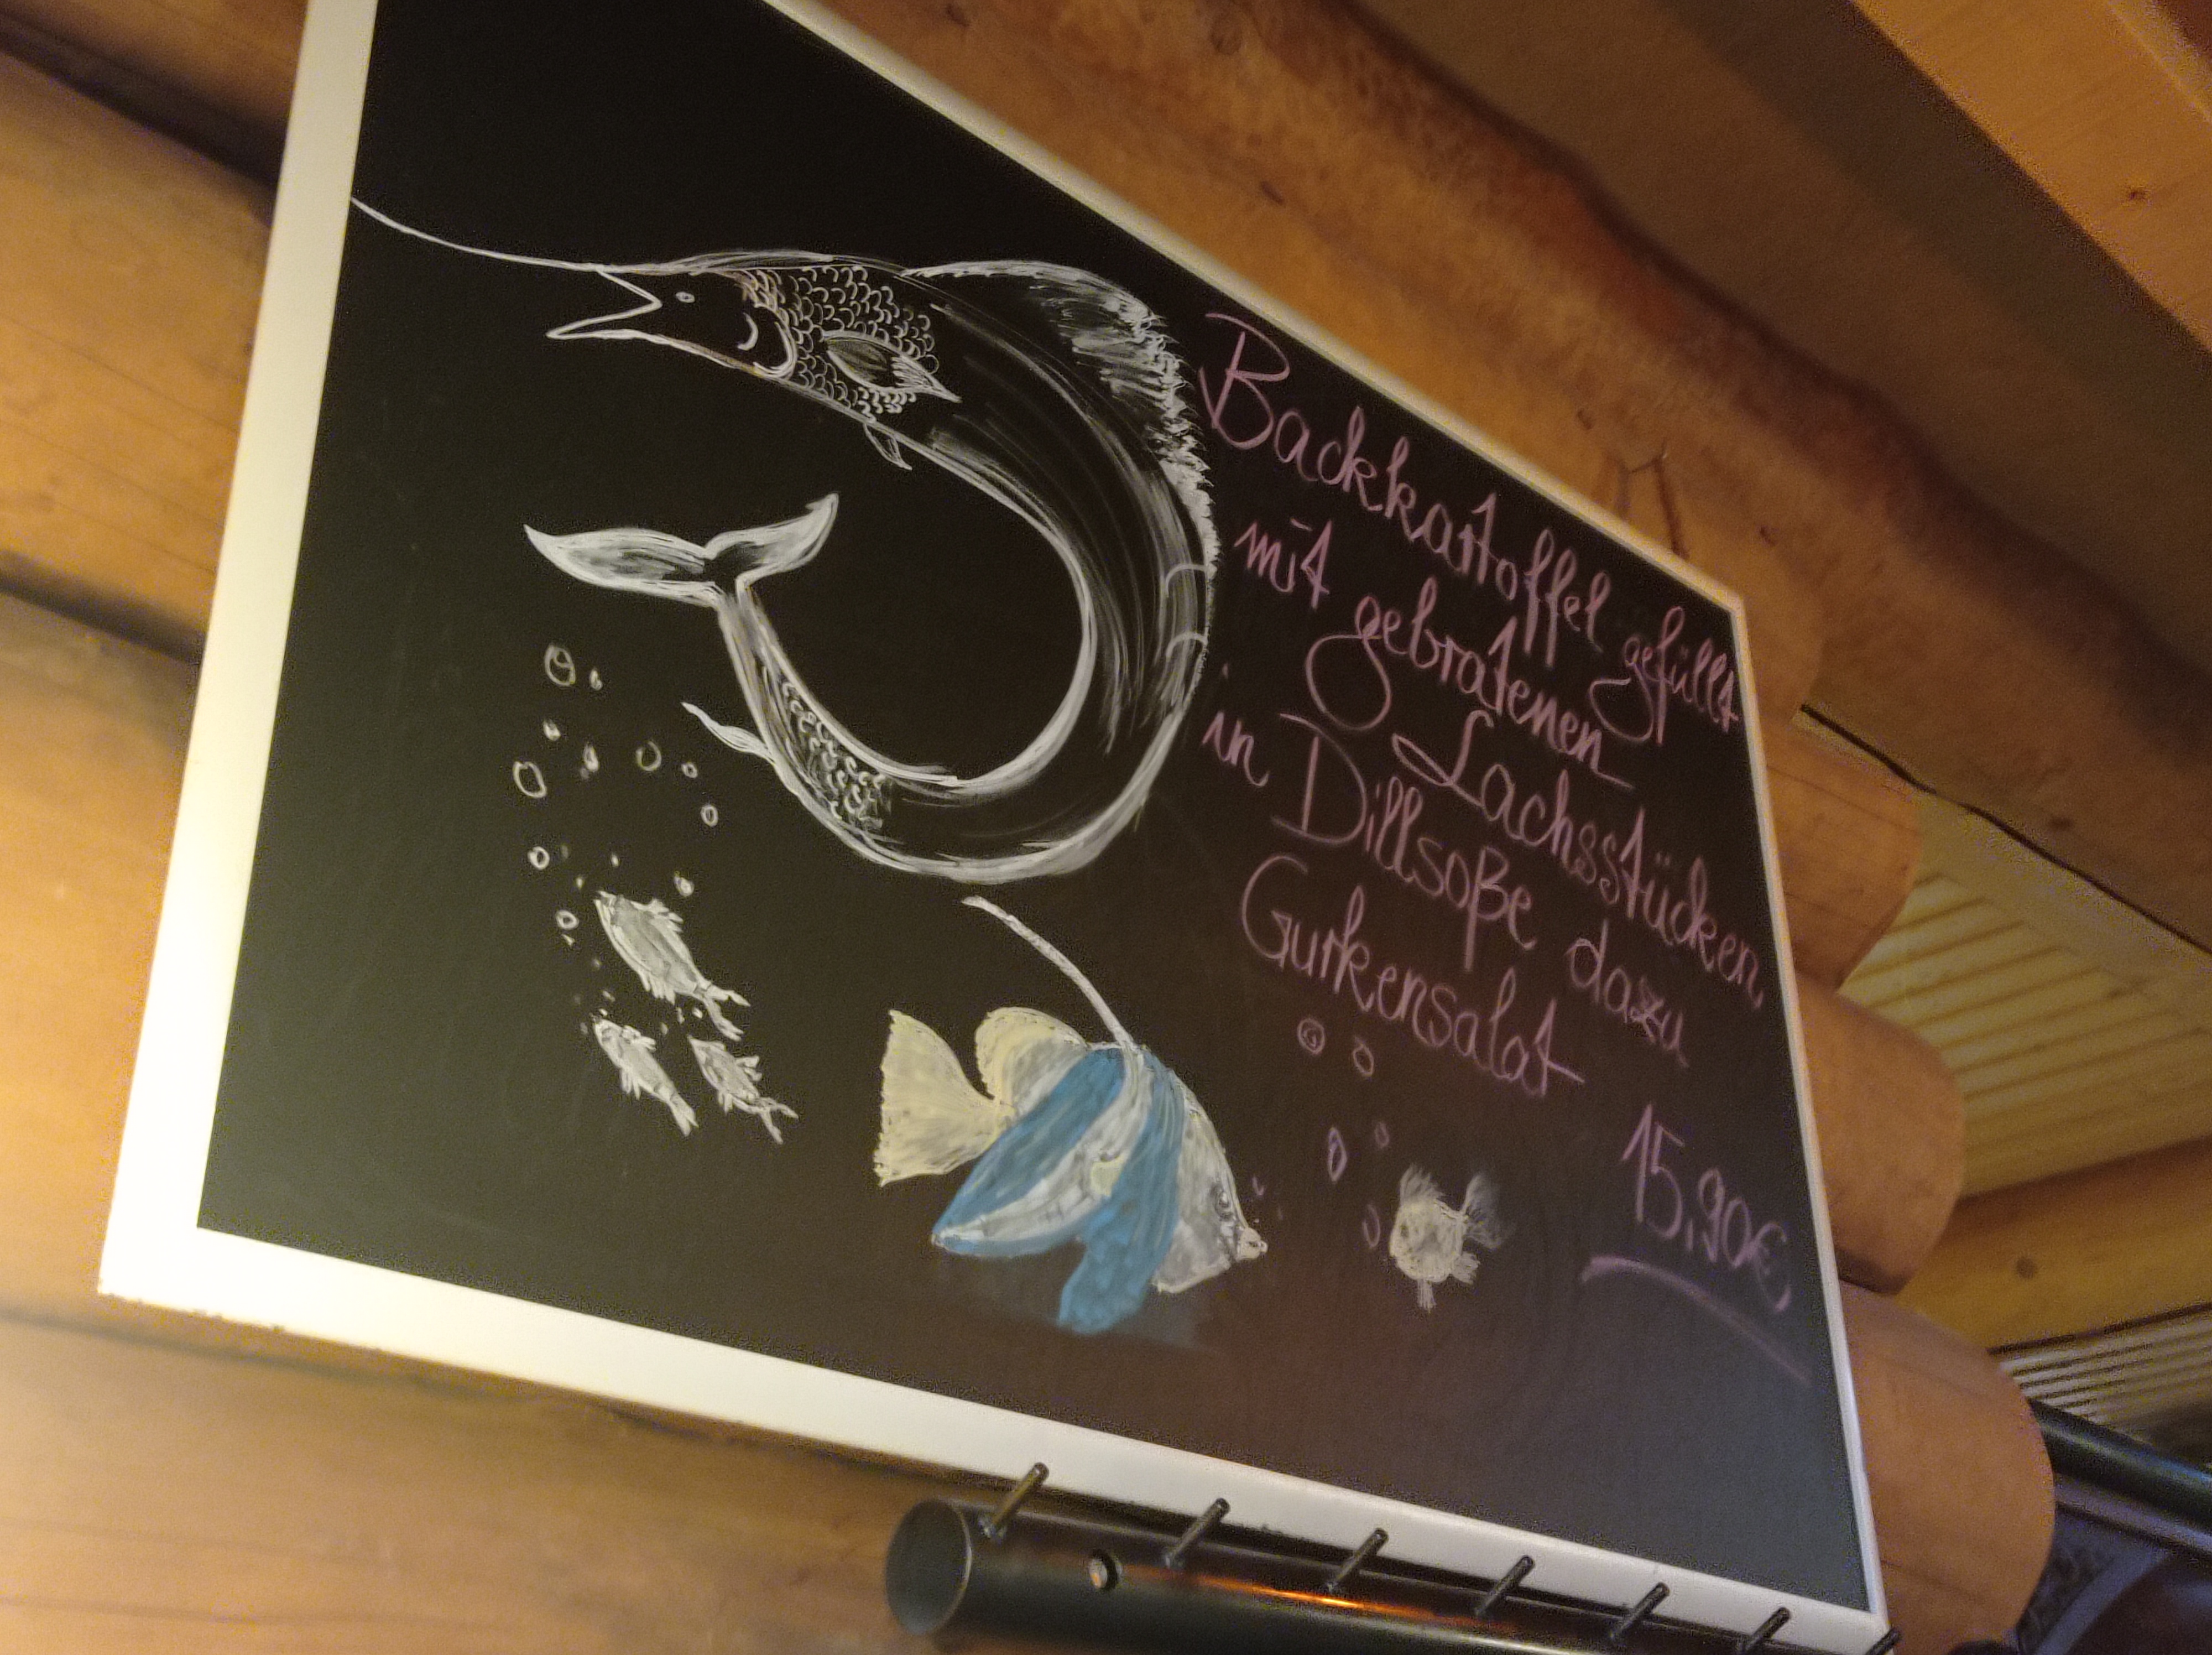 Backkartoffel gefüllt
mit gebratenen
Lachsstücken
in Dillsoße dazu
Gurkensalat
15,90€